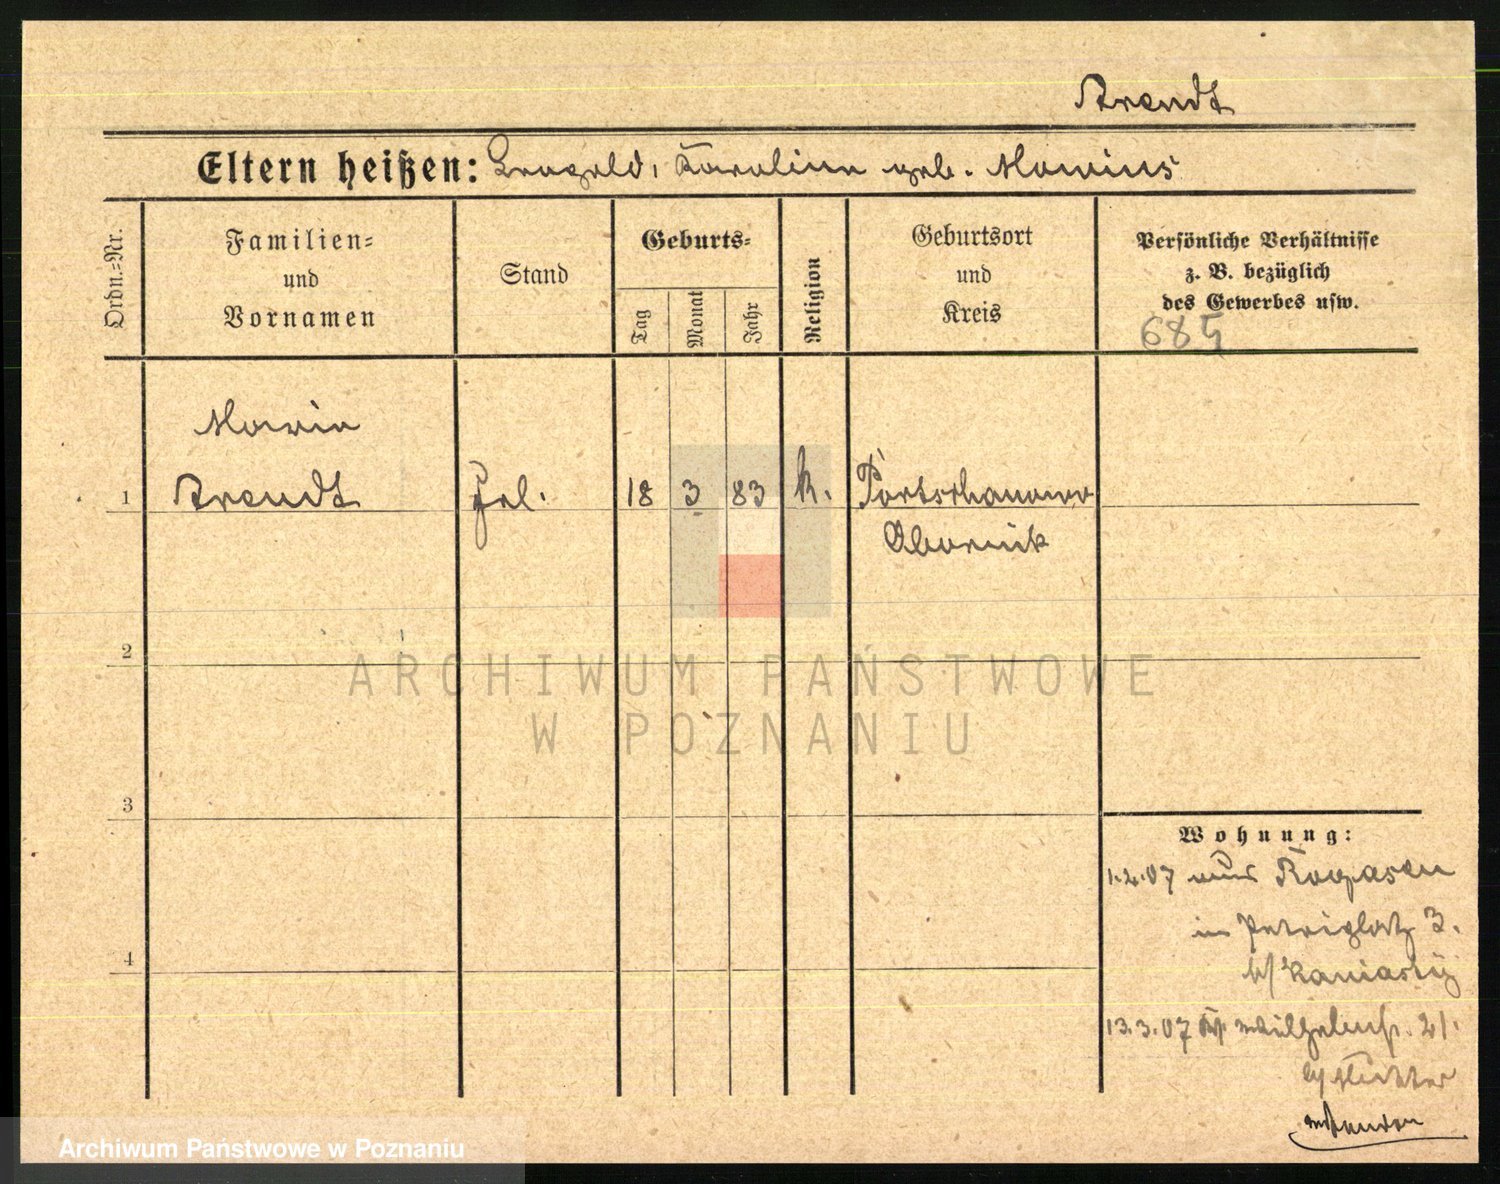 Arendt
Eltern heißen: Leopold, Karoline geb. Marius
Ordn.-Nr.
Familien-
und
Vornamen
Stand
Geburts-
Tag
Monat
Jahr
Religion
Geburtsort
und
Kreis
Persönliche Verhältnisse
z. B. bezüglich
des Gewerbes usw.
685
Marie
1 Arendt Frl. 18 3 83 k.
Obornik
2
ARCHIWUM PAŃSTWOWE
W POZNANIU
3
Wohnung:
1.2.07 aus Rogasen
in Petriplatz 3.
b/
4
13.3.07 Wilhelmstr. 21.
b/
Archiwum Państwowe w Poznaniu